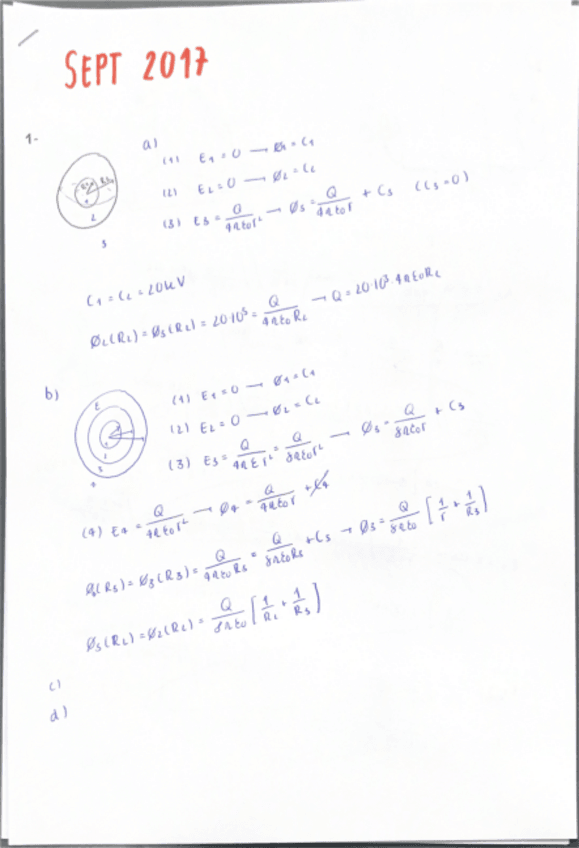 SEPT 2017
1-
a)
(1) E1 = 0 → Ø1 = C1
(2) E2 = 0 → Ø2 = C2
(3) E3 = Q/4πε0r² → Ø3 = Q/4πε0r + C3 (C3=0)
2
3
C1 = C2 = 20kV
Ø2(R2) = Ø3(R2) = 20·10³ = Q/4πε0R2 → Q = 20·10³·4πε0R2
b)
(1) E1 = 0 → Ø1 = C1
(2) E2 = 0 → Ø2 = C2
(3) E3 = Q/4πεr² = Q/8πε0r² → Ø3 = Q/8πε0r + C3
(4) E4 = Q/4πε0r² → Ø4 = Q/4πε0r + C4
Ø4(R3) = Ø3(R3) = Q/4πε0R3 = Q/8πε0R3 + C3 → Ø3 = Q/8πε0 [1/r + 1/R3]
Ø3(R2) = Ø2(R2) = Q/8πε0 [1/R2 + 1/R3]
c)
d)